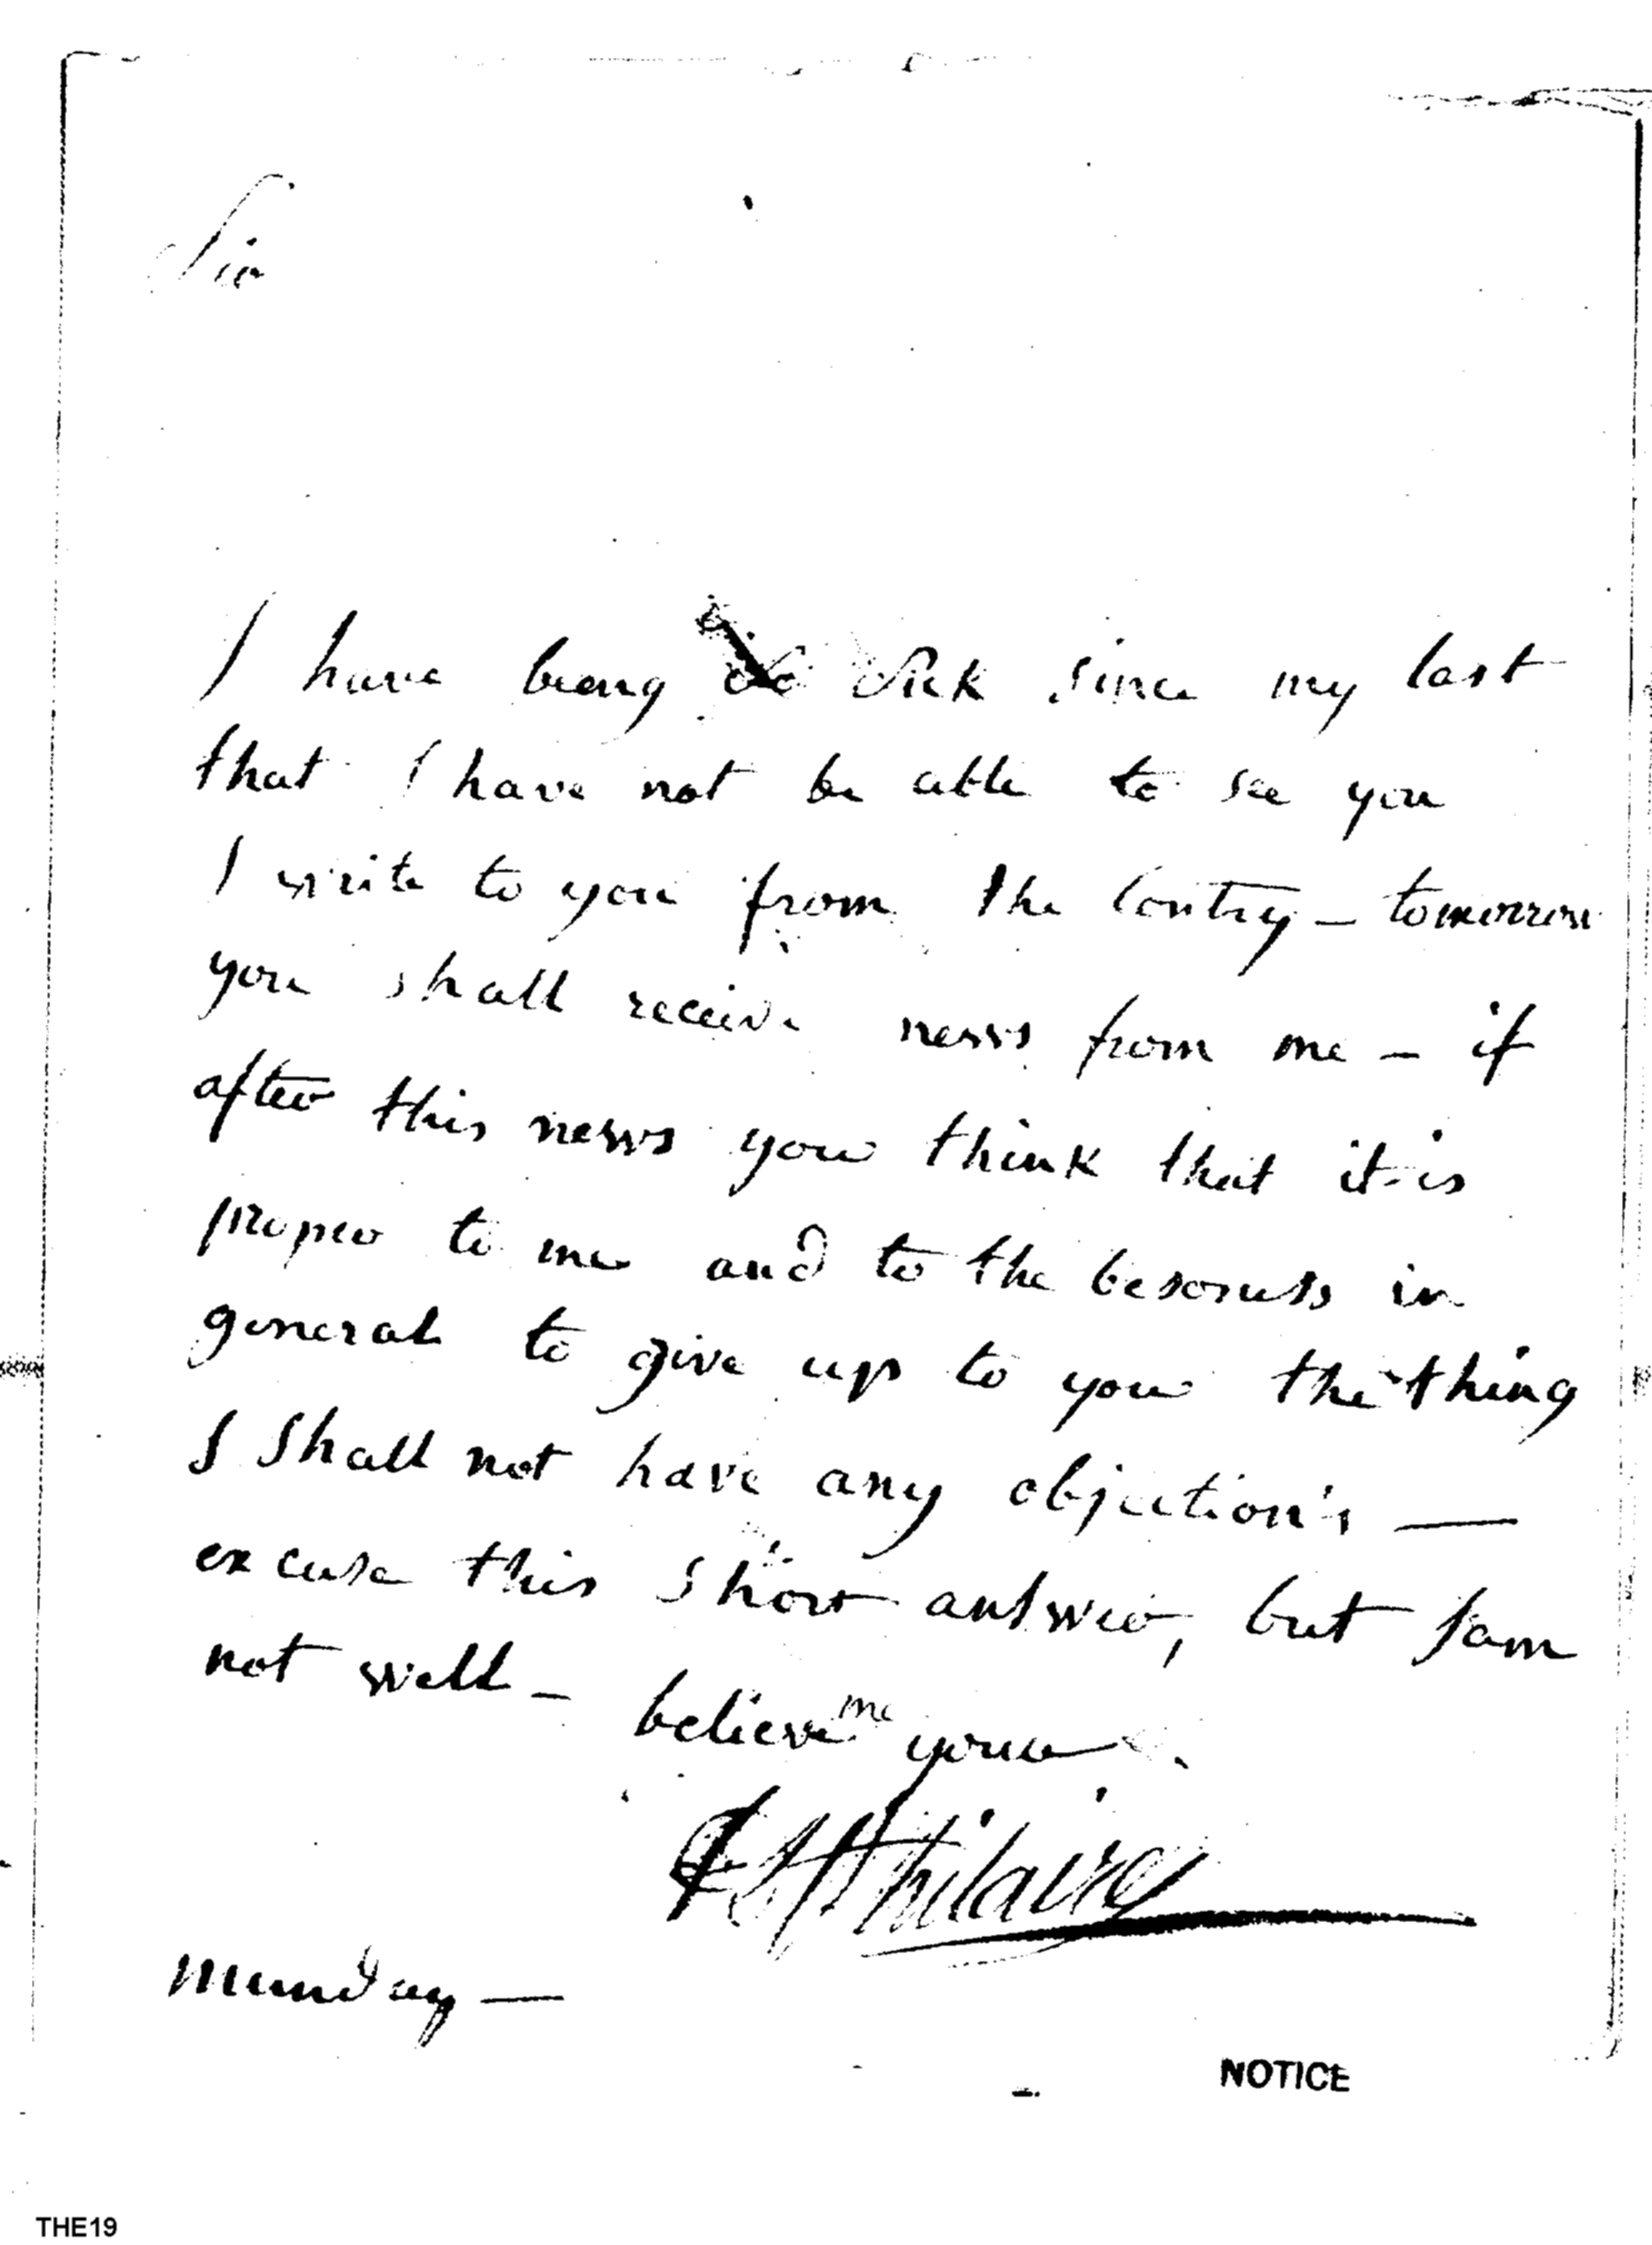 Sir
I have being sick since my last
that I have not be able to see you
I write to you from the Contry – tomorrow
you shall receive news from me – if
after this news you think that it is
proper to me and to the in
general to give up to you the thing
I Shall not have any objection's —
excuse this short answer, but I am
not well – believe me your
St hilaire
munday —
NOTICE
THE19